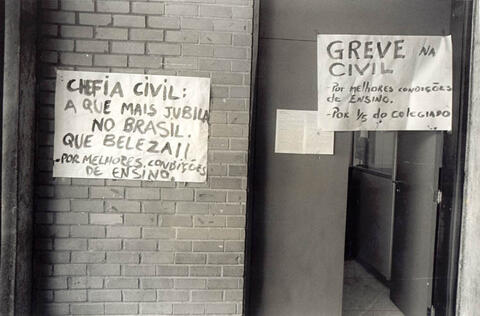 CHEFIA CIVIL:
A QUE MAIS JUBILA
NO BRASIL.
QUE BELEZA!!
-POR MELHORES CONDIÇÕES
DE ENSINO.
GREVE NA
CIVIL
-POR MELHORES CONDIÇÕES
de ENSINO.
-POR 1/5 do COLEGIADO